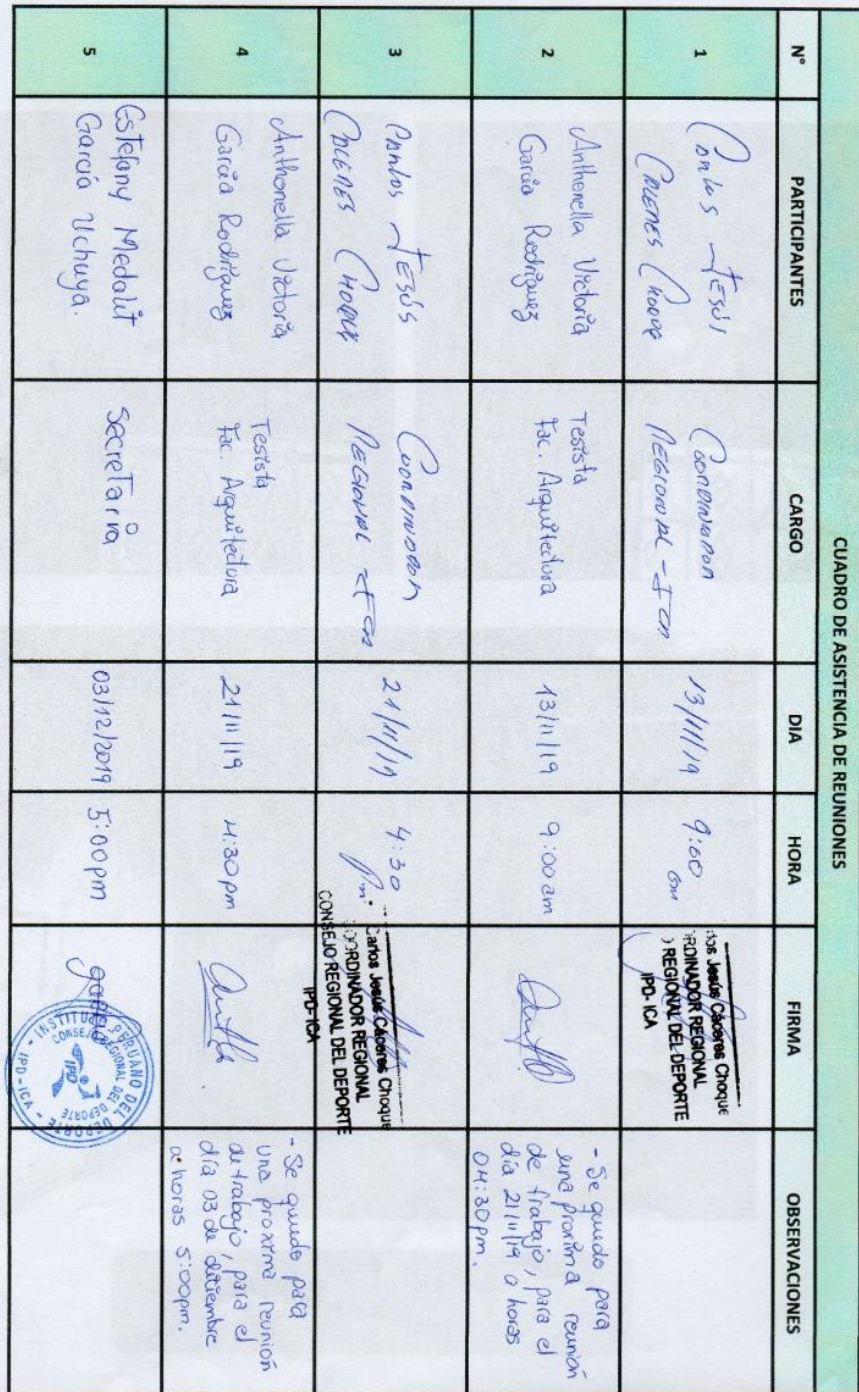 CUADRO DE ASISTENCIA DE REUNIONES
N° PARTICIPANTES CARGO DIA HORA FIRMA OBSERVACIONES
1
Carlos Jesús
Cáceres Choque
Coordinador
Regional - Ica
13/11/19
9:00
am
los Jesús Cáceres Choque
ORDINADOR REGIONAL
O REGIONAL DEL DEPORTE
IPD-ICA
2
Anthonella Victoria
García Rodríguez
Tesista
Fac. Arquitectura
13/11/19
9:00am
- Se quedo para
una proxima reunión
de trabajo, para el
día 21/11/19 a horas
04:30pm.
3
Carlos Jesús
Cáceres Choque
Coordinador
Regional - Ica
21/11/19
4:30
pm.
Carlos Jesús Cáceres Choque
COORDINADOR REGIONAL
CONSEJO REGIONAL DEL DEPORTE
IPD-ICA
4
Anthonella Victoria
García Rodríguez
Tesista
Fac. Arquitectura
21/11/19
4:30pm
- Se quedo para
una proxima reunión
de trabajo, para el
día 03 de diciembre
a horas 5:00pm.
5
Estefany Medalit
García Uchuya.
Secretaria
03/12/2019
5:00pm
INSTITUTO PERUANO DEL DEPORTE
CONSEJO REGIONAL DEL DEPORTE
IPD
IPD-ICA